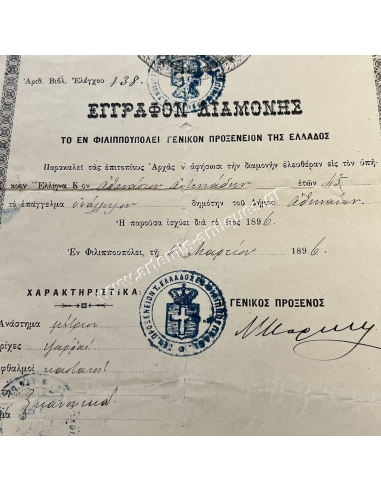 Ἀριθ. Βιβλ. Ἐλέγχου 138.
ΕΓΓΡΑΦΟΝ ΔΙΑΜΟΝΗΣ
ΤΟ ΕΝ ΦΙΛΙΠΠΟΥΠΟΛΕΙ ΓΕΝΙΚΟΝ ΠΡΟΞΕΝΕΙΟΝ ΤΗΣ ΕΛΛΑΔΟΣ
Παρακαλεῖ τὰς ἐπιτοπίους Ἀρχὰς ν' ἀφήσωσι τὴν διαμονὴν ἐλευθέραν εἰς τὸν ὑπή-
κοον Ἕλληνα Κ-ον Ἀθανάσιον ἐτῶν 45
τὸ ἐπάγγελμα ὑπάλληλον δημότην τοῦ Δήμου Ἀθηναίων
Ἡ παροῦσα ἰσχύει διὰ τὸ ἔτος 1896.
Ἐν Φιλιππουπόλει, τῇ Μαρτίου 1896.
ΧΑΡΑΚΤΗΡΙΣΤΙΚΑ
ΓΕΝΙΚΟΣ ΠΡΟΞΕΝΟΣ
Ἀνάστημα μέτριον
ρίχες ψαραὶ
φθαλμοὶ καστανοὶ
κανονικὰ
www.artantic-antique.gr